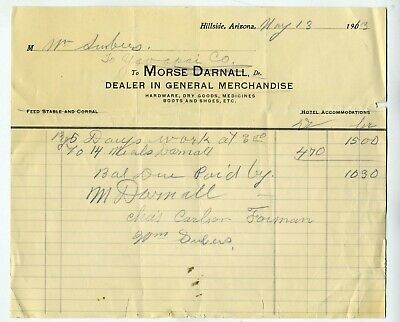 Hillside, Arizona, May 13 1913
M Wm Subers.
To Yavapai Co.
To MORSE DARNALL, Dr.
DEALER IN GENERAL MERCHANDISE
HARDWARE, DRY GOODS, MEDICINES
BOOTS AND SHOES, ETC.
FEED STABLE AND CORRAL HOTEL ACCOMMODATIONS
Dr Cr
By 5 Days work at 3.00 1500
To 14 Meals Darnall 470
Bal Due Paid by 1030
M Darnall
Chas Carlson Forman
Wm Subers.